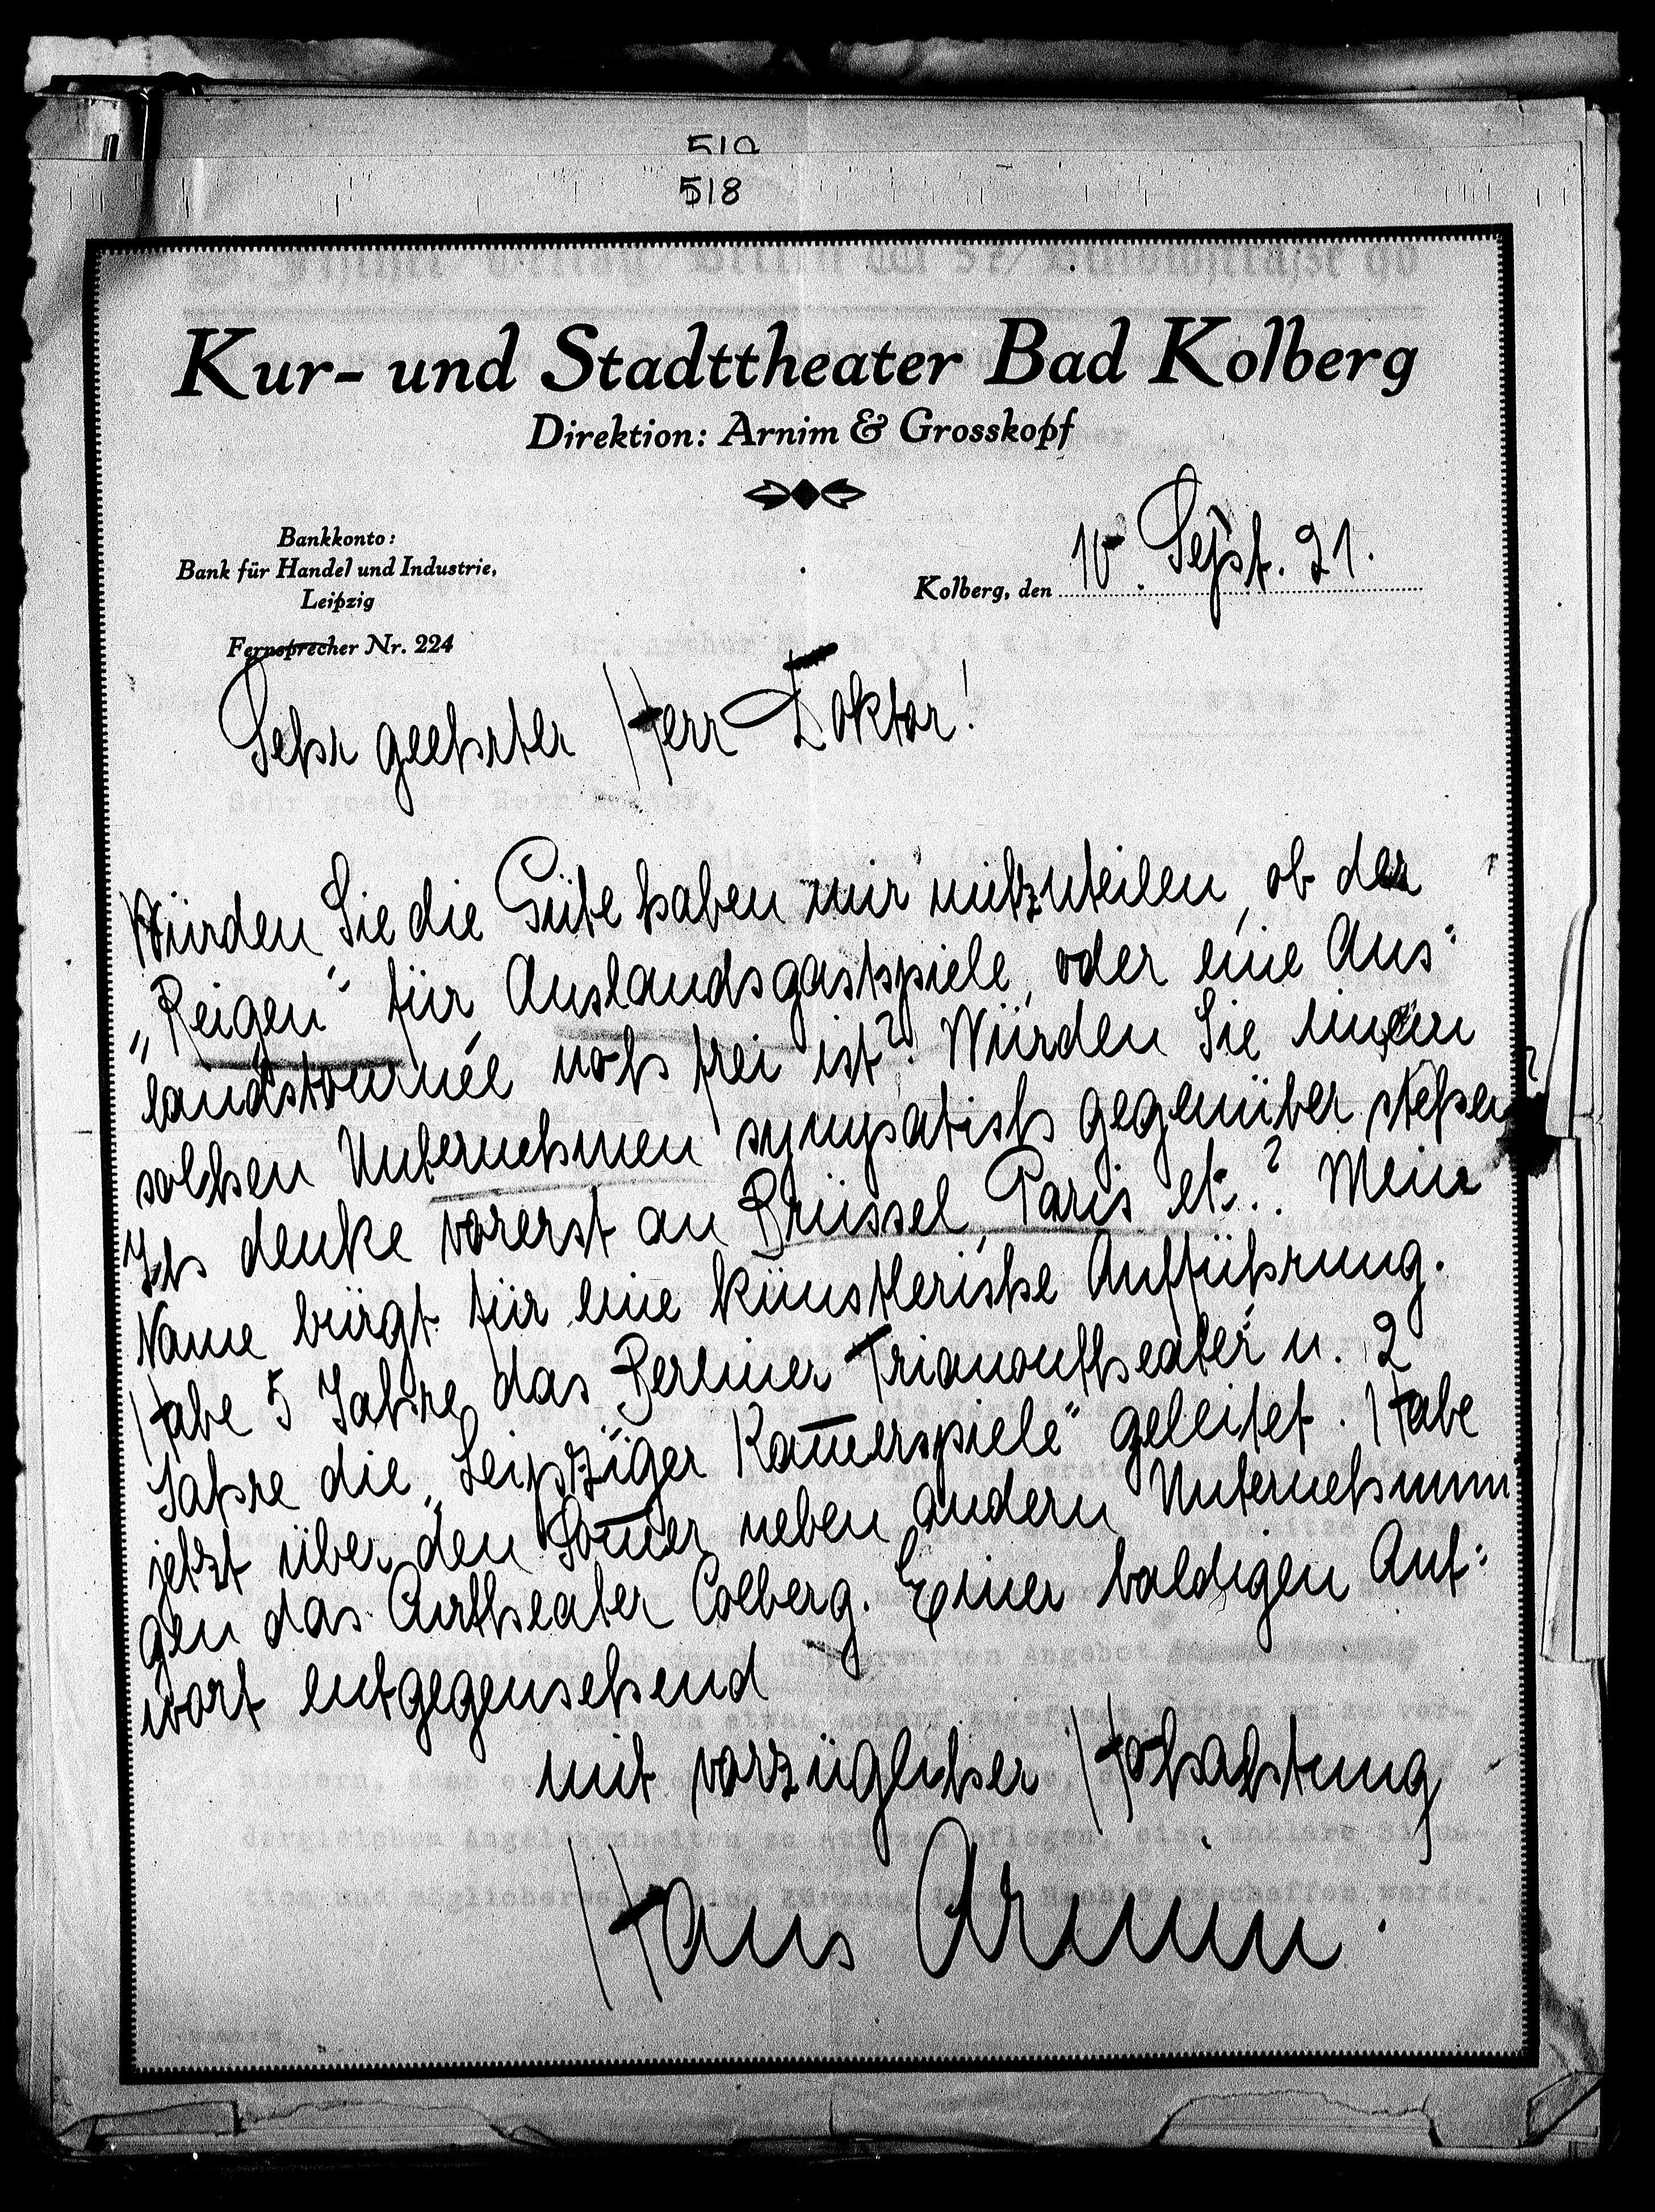 510
518
Kur- und Stadttheater Bad Kolberg
Direktion: Arnim & Grosskopf
Bankkonto:
Bank für Handel und Industrie,
Leipzig
Fernsprecher Nr. 224
Kolberg, den 10. Sept. 21.
Sehr geehrter Herr Doktor!
Würden Sie die Güte haben mir mitzuteilen, ob der
„Reigen" für Auslandsgastspiele, oder eine Aus-
landstournée noch frei ist? Würden Sie einem
solchen Unternehmen sympatisch gegenüber stehen?
Ich denke vorerst an Brüssel, Paris etc.? Mein
Name bürgt für eine künstlerische Aufführung.
Habe 5 Jahre das Berliner Trianontheater u. 2
Jahre die „Leipziger Kam̄erspiele" geleitet. Habe
jetzt über den Som̄er neben andern Unternehmun
gen das Curtheater Colberg. Einer baldigen Ant:
wort entgegensehend
mit vorzüglicher Hochachtung
Hans Arnim.